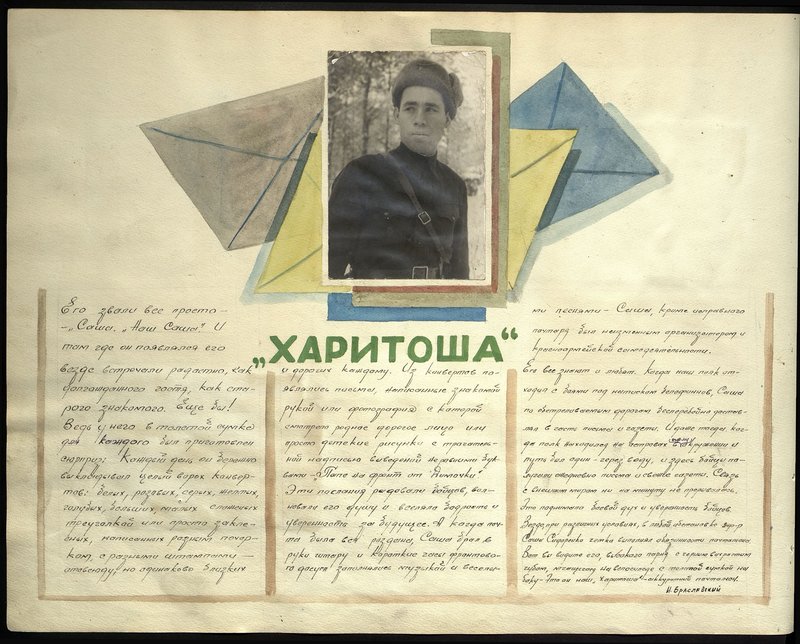 „ХАРИТОША“
Его звали все просто –
– „Саша“, „Наш Саша“. И
там где он появлялся его
везде встречали радостно, как
долгожданного гостя, как ста-
рого знакомого. Еще бы!
Ведь у него в толстой сумке
для каждого был приготовлен
сюрприз: Каждый день он бережно
выкладывал целый ворох конвер-
тов: белых, розовых, серых, желтых,
голубых, больших, малых сложенных
треуголкой или просто закле-
енных, написанных разным почер-
ком, с разными штампами –
отовсюду, но одинаково близких
и дорогих каждому. Из конвертов по-
являлись письма, написанные знакомой
рукой или фотография с которой
смотрело родное дорогое лицо или
просто детские рисунки с трогатель-
ной надписью выведенной неровными бук-
вами – „Папе на фронт от
Эти послания радовали бойцов, вол-
новали его душу и вселяла бодрость и
уверенность за будущее. А когда поч-
та была вся раздана, Саша брал в
руки гитару и короткие часы фронтово-
го досуга заполнялись музыкой и веселы-
ми песнями – Саша, кроме исправного
почтаря был неизменным организатором и
красноармейской самодеятельности.
Его все знают и любят. Когда наш полк от-
ходил с боями под натиском белофиннов, Саша
по обстреливаемым дорогам бесперебойно достав-
лял в части письма и газеты. И даже тогда ког-
да полк находился на островах в окружении и
путь был один – через воду, и здесь бойцы по-
лучали ежедневно письма и свежие газеты. Связь
с внешним миром ни на минуту не прерывалась.
Это поднимало боевой дух и уверенность бойцов.
в любой обстановке
Саша четко выполнял обязанности почтальона.
Вот вы видите его, высокого парня с
губами, на велосипеде с толстой сумкой на
боку – Это он наш, „Харитоша“ – аккуратный почтальон.
И. Браславский